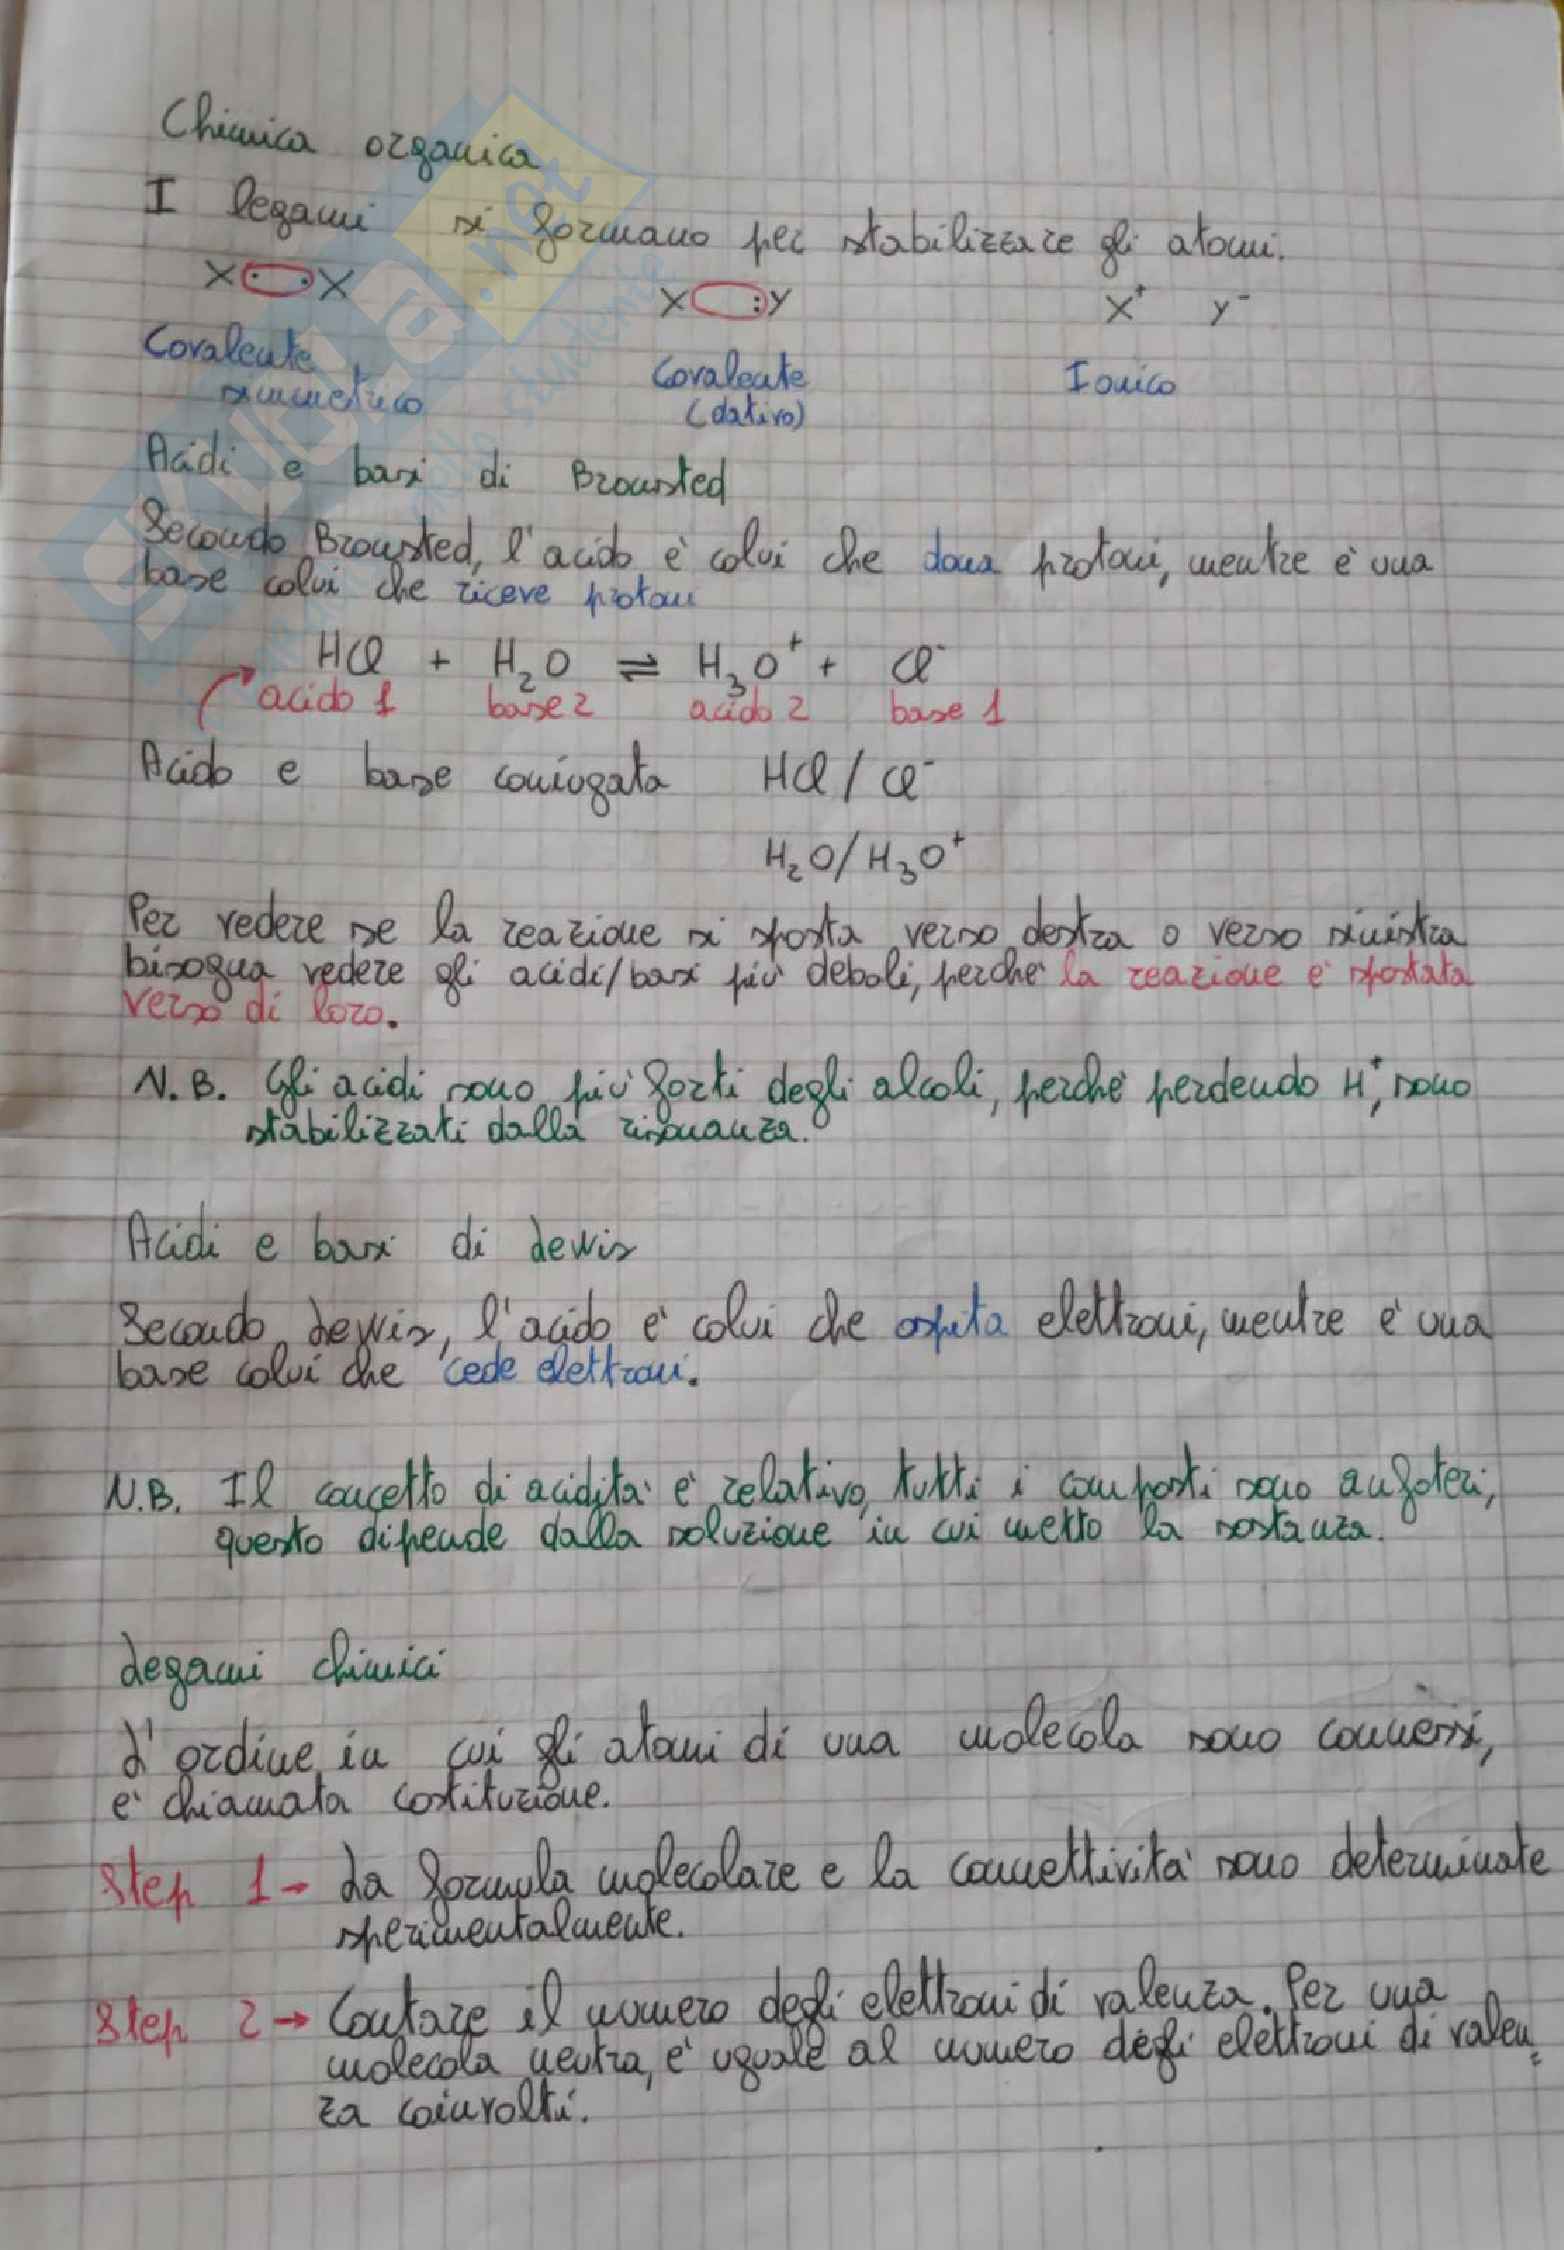 Chimica organica
I legami si formano per stabilizzare gli atomi.
X · · X X :Y X⁺ Y⁻
Covalente simmetrico Covalente (dativo) Ionico
Acidi e basi di Bronsted
Secondo Bronsted, l'acido è colui che dona protoni, mentre è una
base colui che riceve protoni
HCl + H₂O ⇌ H₃O⁺ + Cl⁻
acido 1 base 2 acido 2 base 1
Acido e base coniugata HCl / Cl⁻
H₂O/H₃O⁺
Per vedere se la reazione si sposta verso destra o verso sinistra
bisogna vedere gli acidi/basi più deboli, perché la reazione è spostata
verso di loro.
N.B. Gli acidi sono più forti degli alcoli, perché perdendo H⁺, sono
stabilizzati dalla risonanza.
Acidi e basi di Lewis
Secondo Lewis, l'acido è colui che ospita elettroni, mentre è una
base colui che cede elettroni.
N.B. Il concetto di acidità è relativo, tutti i composti sono anfoteri,
questo dipende dalla soluzione in cui metto la sostanza.
Legami chimici
L'ordine in cui gli atomi di una molecola sono connessi,
è chiamata costituzione.
Step 1→ La formula molecolare e la connettività sono determinate
sperimentalmente.
Step 2→ Contare il numero degli elettroni di valenza. Per una
molecola neutra, è uguale al numero degli elettroni di valen=
za coinvolti.
SKUOLA.net